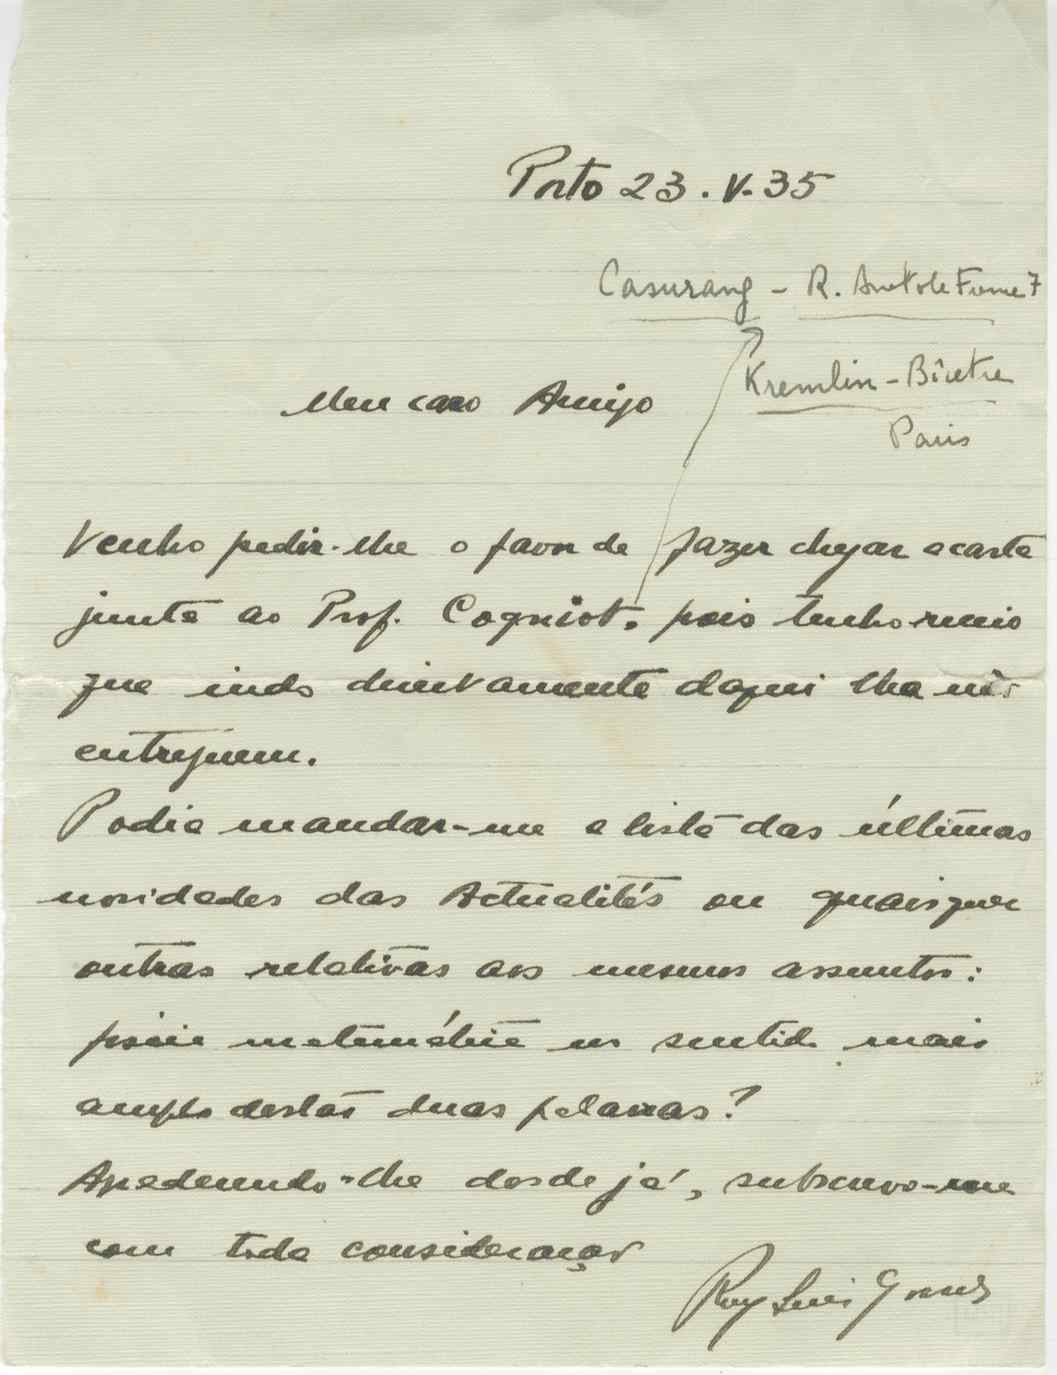 Porto 23.V.35
Casurang - R. Anatole France 7
Kremlin-Bîcetre
Paris
Meu caro Amigo
Venho pedir-lhe o favor de fazer chegar a carta
junta ao Prof. Cogniot, pois tenho receio
que indo directamente daqui lha não
entreguem.
Podia mandar-me a lista das últimas
novidades das Actualités ou quaisquer
outras relativas aos mesmos assuntos:
física matemática no sentido mais
amplo destas duas palavras?
Agradecendo-lhe desde já, subscrevo-me
com toda consideração
Ruy Luis Gomes